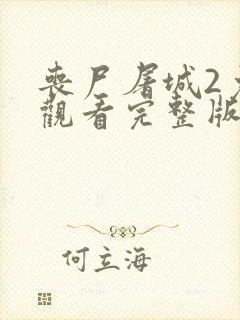 喪尸屠城2
觀看完整版
何立海